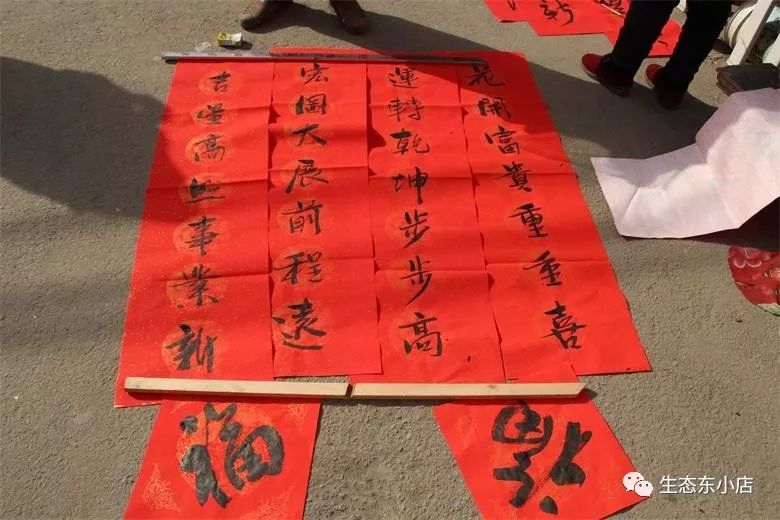 花開富貴重重喜
運轉乾坤步步高
宏圖大展前程遠
吉星高照事業新
福
福
新
生态东小店